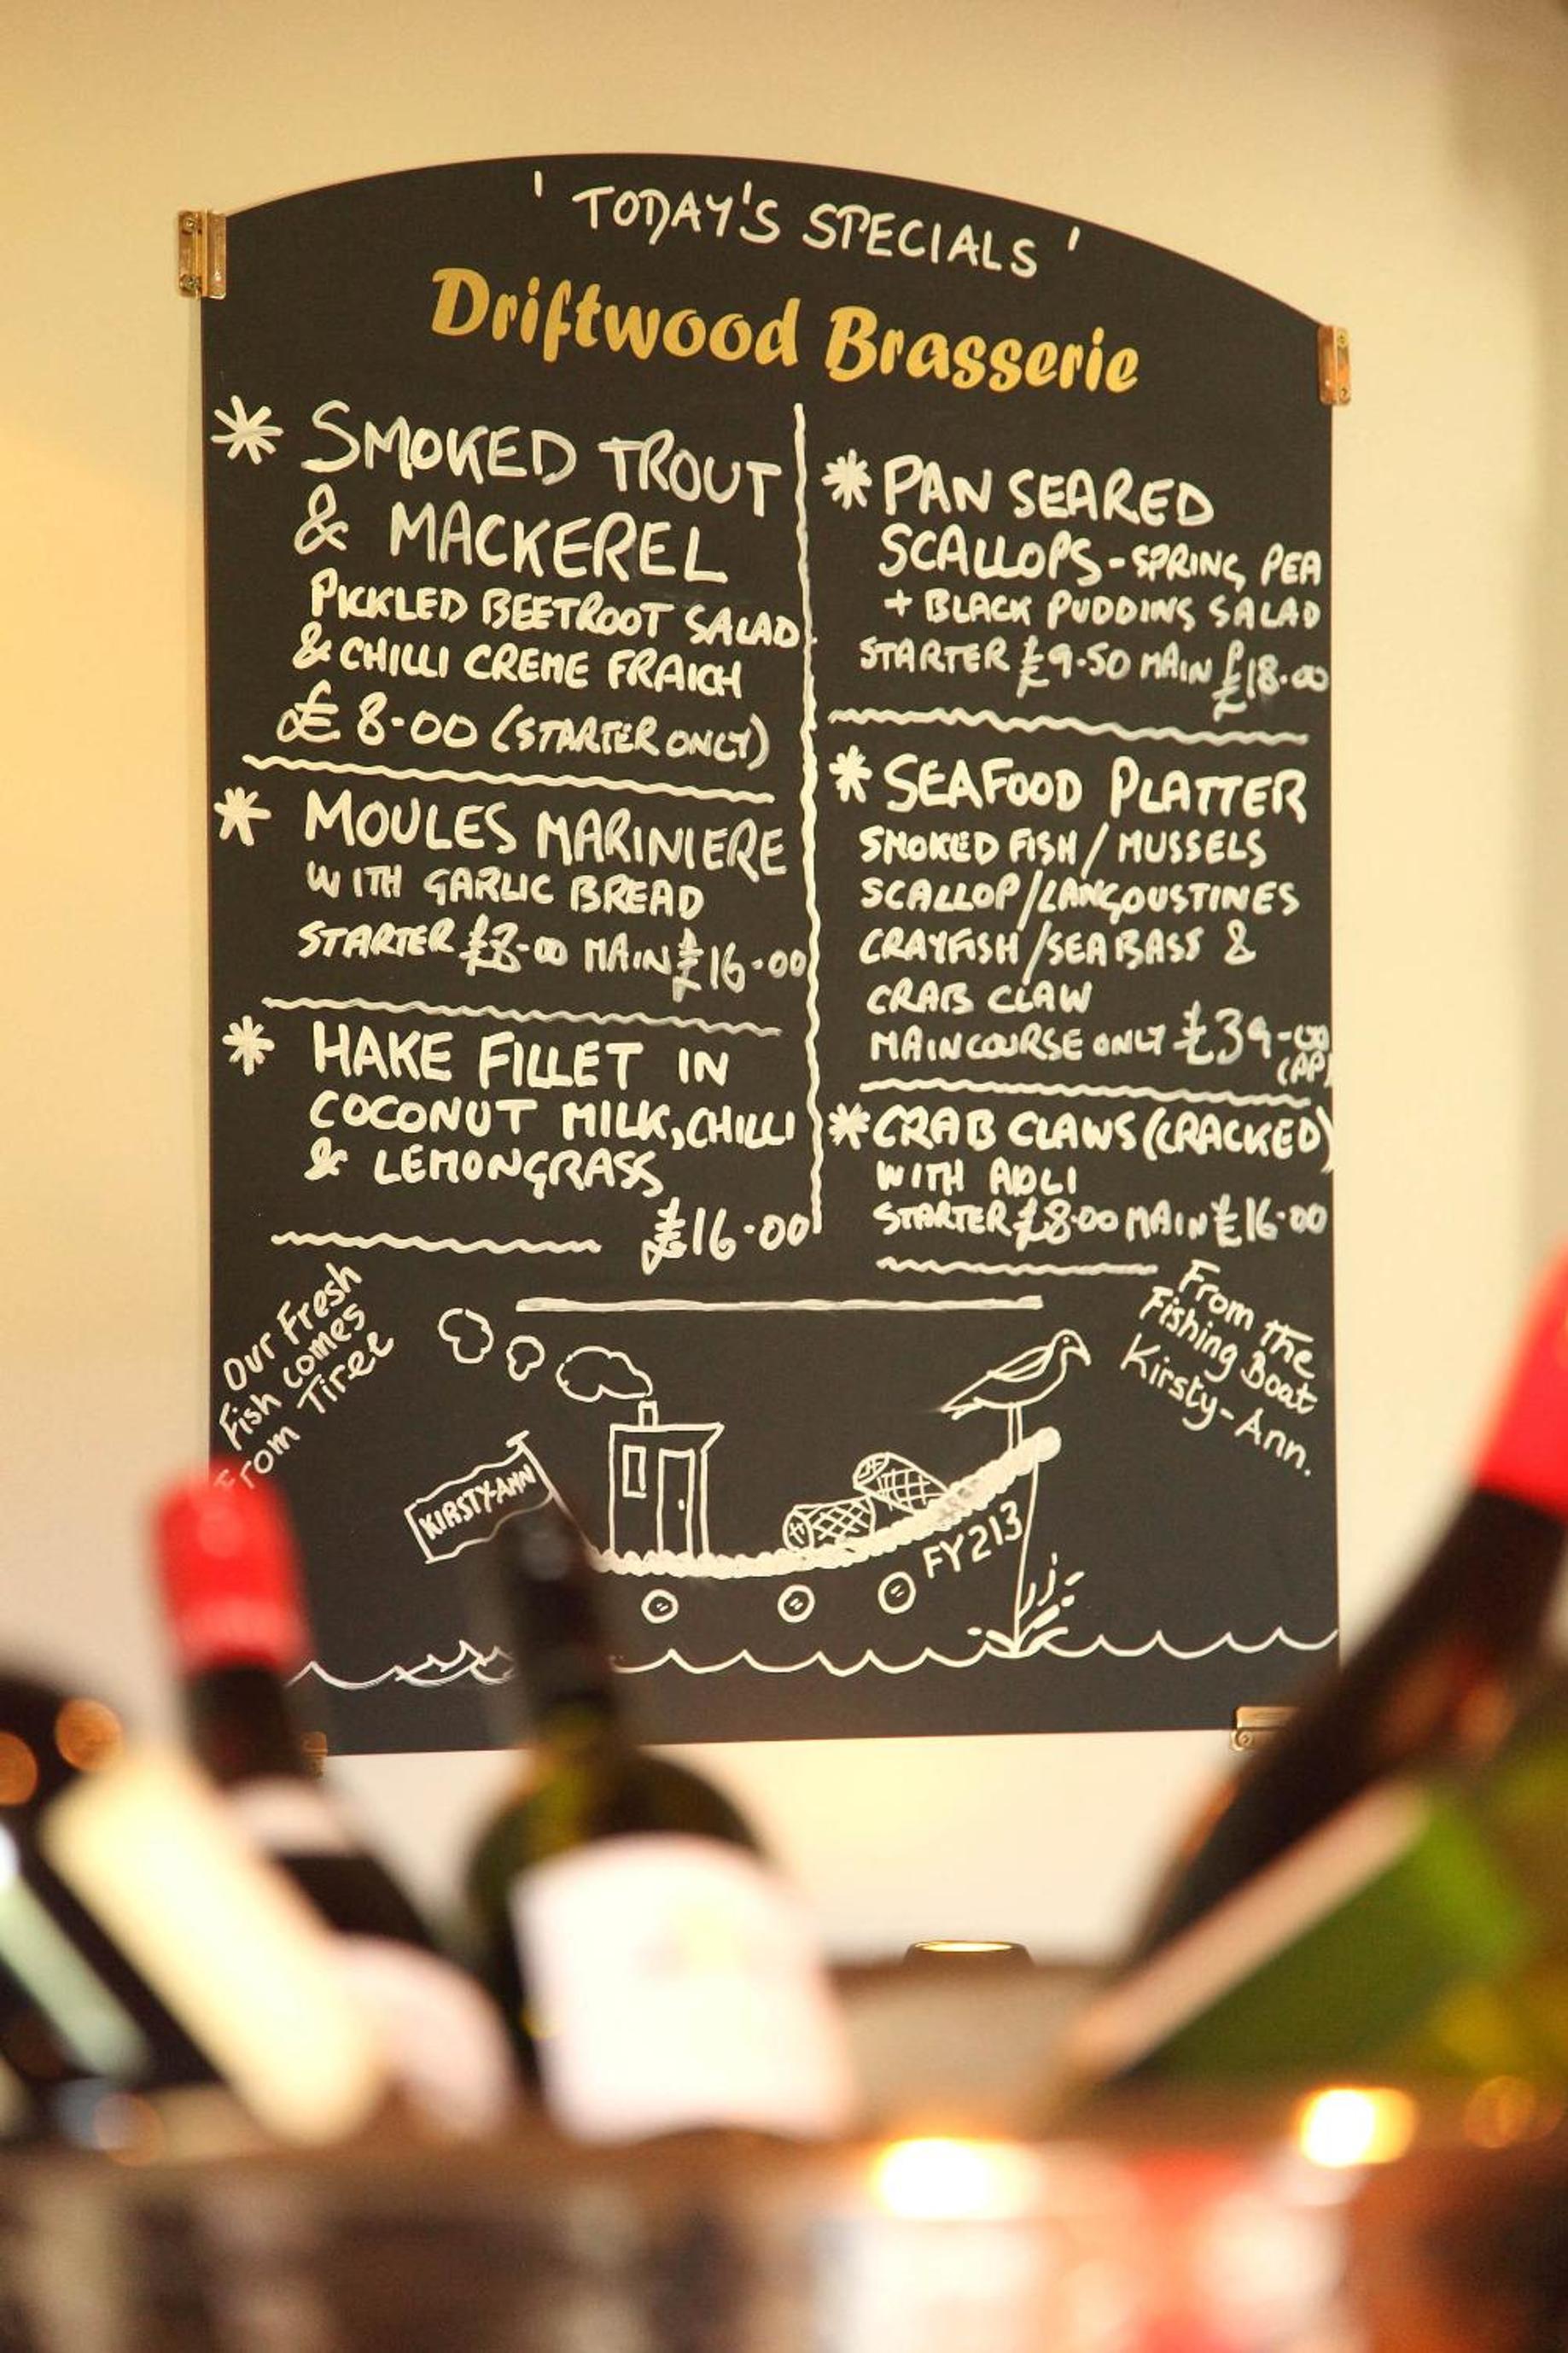 ' TODAY'S SPECIALS '
Driftwood Brasserie
* SMOKED TROUT
& MACKEREL
PICKLED BEETROOT SALAD
& CHILLI CREME FRAICH
£8-00 (STARTER ONLY)
* MOULES MARINIERE
WITH GARLIC BREAD
STARTER £8-00 MAIN £16-00
* HAKE FILLET IN
COCONUT MILK, CHILLI
& LEMONGRASS
£16-00
* PAN SEARED
SCALLOPS - SPRING PEA
+ BLACK PUDDING SALAD
STARTER £9-50 MAIN £18-00
* SEAFOOD PLATTER
SMOKED FISH / MUSSELS
SCALLOP / LANGOUSTINES
CRAYFISH / SEA BASS &
CRAB CLAW
MAIN COURSE ONLY £39-00
(PP)
* CRAB CLAWS (CRACKED)
WITH AOLI
STARTER £8-00 MAIN £16-00
Our Fresh
Fish comes
From Tiree
From the
Fishing Boat
Kirsty-Ann.
KIRSTY-ANN
FY213